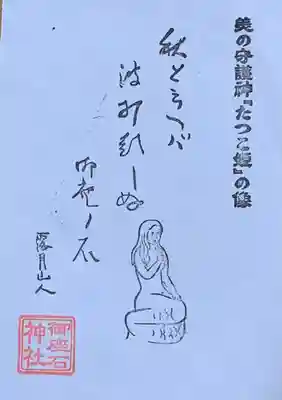 美の守護神『たつこ姫』の像
秋と云へバ
波打
御座ノ石
露月山人
御座石
神社